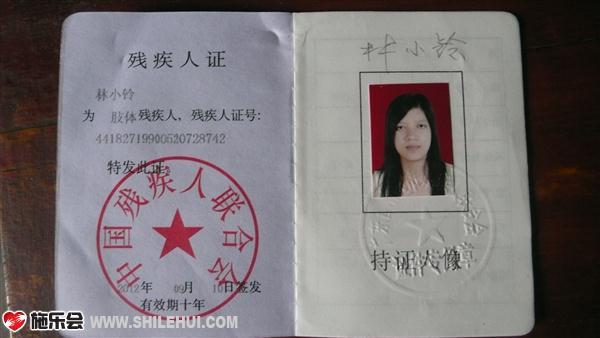 残疾人证
林小铃
为 肢体残疾人，残疾人证号:
44182719900520728742
特发此证。
中国残疾人联合会
2012年 09月 10日签发
有效期十年
林小铃
持证人像
施乐会 WWW.SHILEHUI.COM